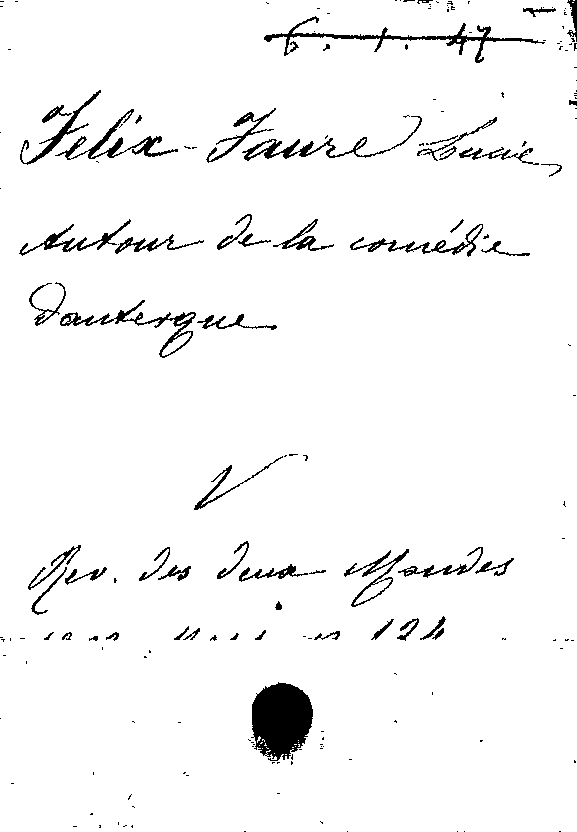 6. 1. 47
Felix-Faure Lucie,
Autour de la comédie
dantesque.
V
Rev. des deux Mondes
124